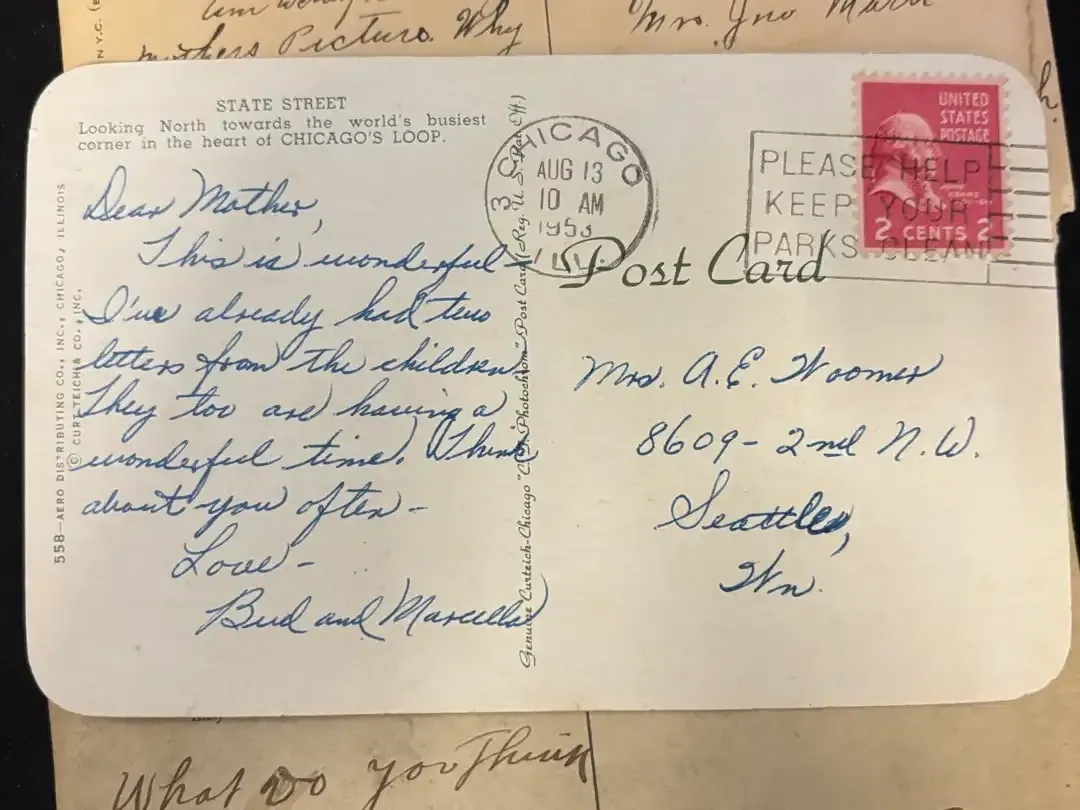 mothers Picture. Why
Mrs. Jno
STATE STREET
Looking North towards the world's busiest
corner in the heart of CHICAGO'S LOOP.
Dear Mother,
This is wonderful -
I've already had two
letters from the children.
They too are having a
wonderful time. Think
about you often -
Love -
Bud and Marcella
558—AERO DISTRIBUTING CO., INC., CHICAGO, ILLINOIS
© CURT TEICH & CO., INC.
Genuine Curteich-Chicago "C.T. Photochrom" Post Card (Reg. U. S. Pat. Off.)
CHICAGO
AUG 13
10 AM
1953
ILL.
3
PLEASE HELP
KEEP YOUR
PARKS CLEAN
UNITED
STATES
POSTAGE
JOHN
ADAMS
2 CENTS 2
Post Card
Mrs. A. E. Woomer
8609 - 2nd N. W.
Seattle,
Wn.
What Do you Think